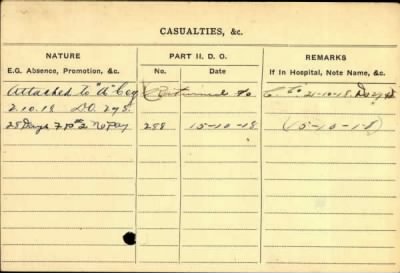 CASUALTIES, &c.
NATURE
E.G. Absence, Promotion, &c.
PART II. D. O.
No. Date
REMARKS
If In Hospital, Note Name, &c.
Attached to "A" Coy Returned to C. Co 21-10-18
2.10.18 D.O. 278.
28 Days F.P. #2 No Pay 288 15-10-18 (15-10-18)